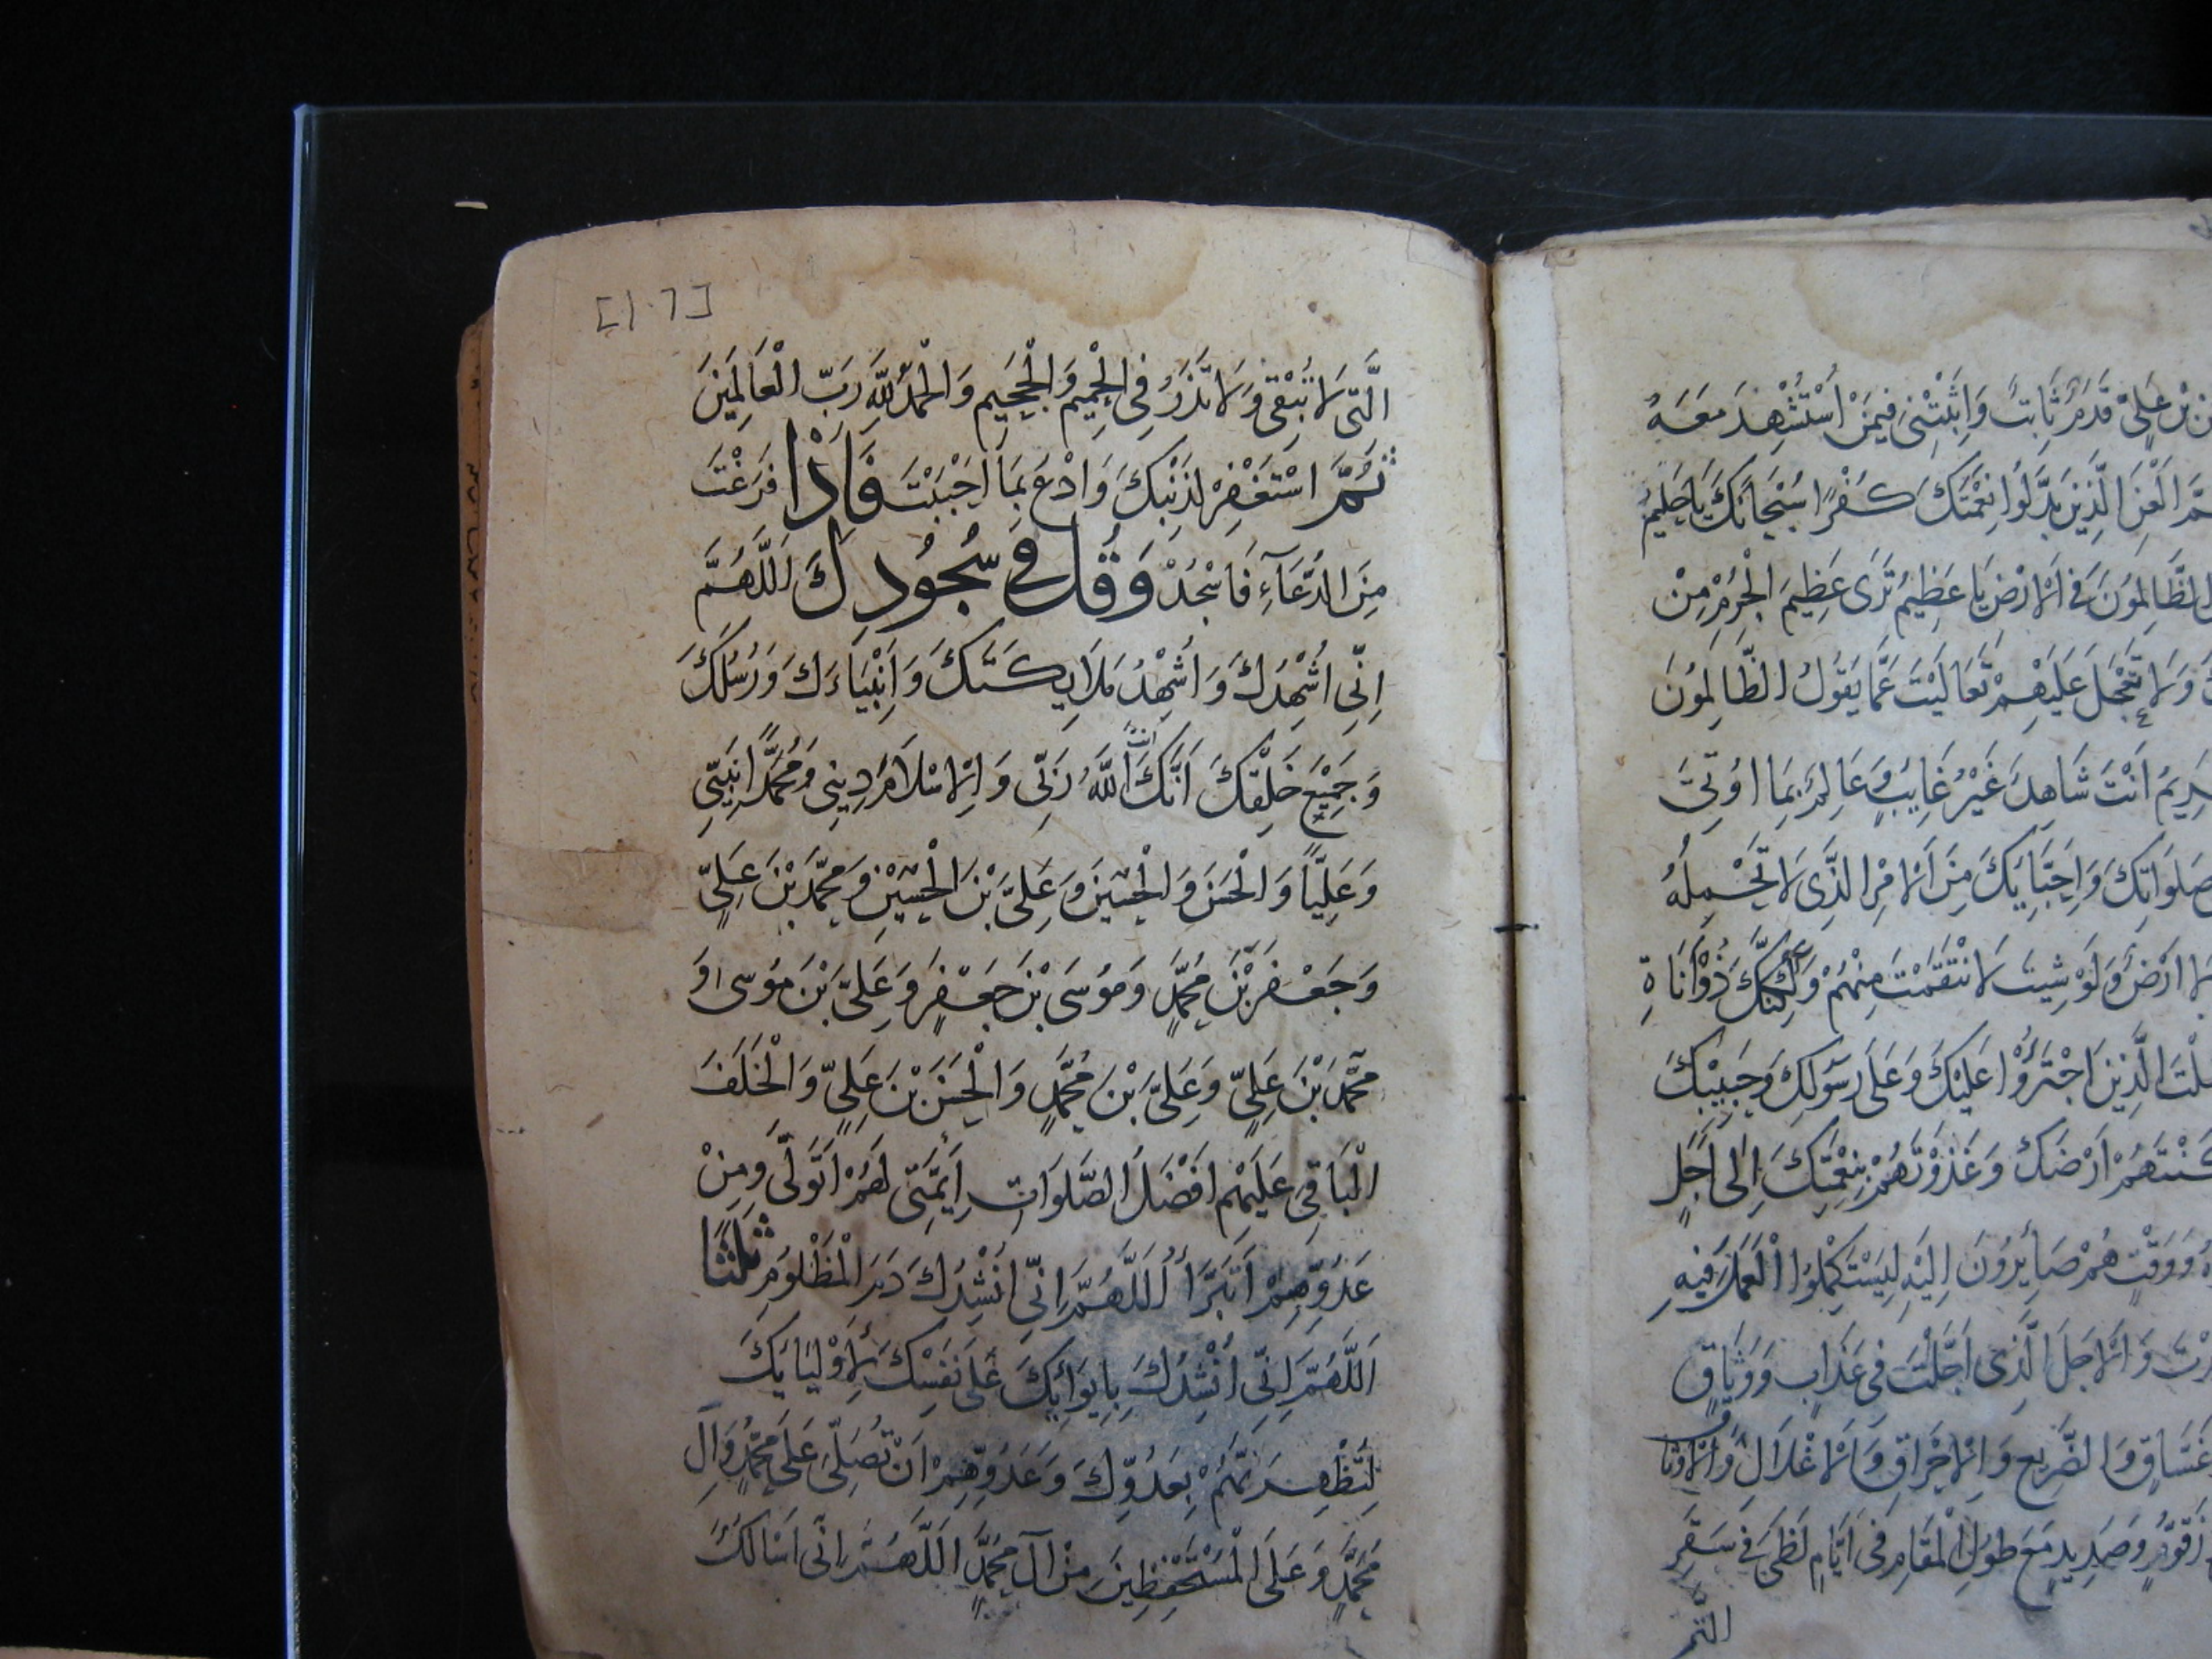 نَ بْنِ عَلِيٍّ قَدَمٌ ثَابِتٌ وَاَثْبِتْنِي فِيمَنْ اسْتُشْهِدَ مَعَهُ
الْعَنِ الَّذِينَ بَدَّلُوا نِعْمَتَكَ كُفْرًا سُبْحَانَكَ يَا حَلِيمُ
الظَّالِمُونَ فِي الْاَرْضِ يَا عَظِيمُ تَرَى عَظِيمَ الْجُرْمِ مِنْ
وَلَا تَعْجَلْ عَلَيْهِمْ تَعَالَيْتَ عَمَّا يَقُولُ الظَّالِمُونَ
اَنْتَ شَاهِدٌ غَيْرُ غَايِبٍ وَعَالِمٌ بِمَا اُوتِيَ
صَلَوَاتِكَ وَاَحِبَّايِكَ مِنَ الْاَمْرِ الَّذِي لَا تَحْمِلُهُ
اَرْضٌ وَلَوْ شِيتَ لَانْتَقَمْتَ مِنْهُمْ وَلَكِنَّكَ ذُوْاَنَاةٍ
الَّذِينَ اجْتَرَؤُا عَلَيْكَ وَعَلَى رَسُولِكَ وَحَبِيبِكَ
اَرْضَكَ وَغَذَوْتَهُمْ بِنِعْمَتِكَ اِلَى اَجَلٍ
وَوَقْتٍ هُمْ صَايِرُونَ اِلَيْهِ لِيَسْتَكْمِلُوا الْعَمَلَ فِيهِ
وَالْاَجَلَ الَّذِي اَجَّلْتَ فِي عَذَابٍ وَوَثَاقٍ
غَسَّاقٍ وَالضَّرِيعِ وَالْاِحْرَاقِ وَالْاَغْلَالِ وَالْاَوْثَاقِ
زَقُّومٍ وَصَدِيدٍ مَعَ طُولِ الْمَقَامِ فِي اَيَّامِ لَظَى فِي سَقَرِ
التى
[١٠٦]
الَّتِي لَا تُبْقِي وَلَا تَذَرُ فِي الْحَمِيمِ وَالْجَحِيمِ وَالْحَمْدُ لِلّهِ رَبِّ الْعَالَمِينَ
ثُمَّ اسْتَغْفِرْ لِذَنْبِكَ وَادْعُ بِمَا اَحْبَبْتَ فَاِذَا فَرَغْتَ
مِنَ الدُّعَآءِ فَاسْجُدْ وَقُلْ فِي سُجُودِكَ اَللَّهُمَّ
اِنِّي اُشْهِدُكَ وَاُشْهِدُ مَلَايِكَتَكَ وَاَنْبِيَاءَكَ وَرُسُلَكَ
وَجَمِيعَ خَلْقِكَ اَنَّكَ اَنْتَ اللّهُ رَبِّي وَالْاِسْلَامَ دِينِي وَمُحَمَّدًا نَبِيِّي
وَعَلِيًّا وَالْحَسَنَ وَالْحُسَيْنَ وَعَلِيَّ بْنَ الْحُسَيْنِ وَمُحَمَّدَ بْنَ عَلِيٍّ
وَجَعْفَرَ بْنَ مُحَمَّدٍ وَمُوسَى بْنَ جَعْفَرٍ وَعَلِيَّ بْنَ مُوسى وَ
مُحَمَّدَ بْنَ عَلِيٍّ وَعَلِيَّ بْنَ مُحَمَّدٍ وَالْحَسَنَ بْنَ عَلِيٍّ وَالْخَلَفَ
الْبَاقِيَ عَلَيْهِمْ اَفْضَلُ الصَّلَوَاتِ اَيِمَّتِي لَهُمْ اَتَوَلَّى وَمِنْ
عَدُوِّهِمْ اَتَبَرَّأُ اَللَّهُمَّ اِنِّي اَنْشُدُكَ دَمَ الْمَظْلُومِ ثلثًا
اَللَّهُمَّ اِنِّي اَنْشُدُكَ بِاِيوَائِكَ عَلَى نَفْسِكَ لِاَوْلِيَايِكَ
لِتُظْفِرَنَّهُمْ بِعَدُوِّكَ وَعَدُوِّهِمْ اَنْ تُصَلِّيَ عَلَى مُحَمَّدٍ وَآلِ
مُحَمَّدٍ وَعَلَى الْمُسْتَحْفَظِينَ مِنْ آلِ مُحَمَّدٍ اَللَّهُمَّ اِنِّي اَسْاَلُكَ